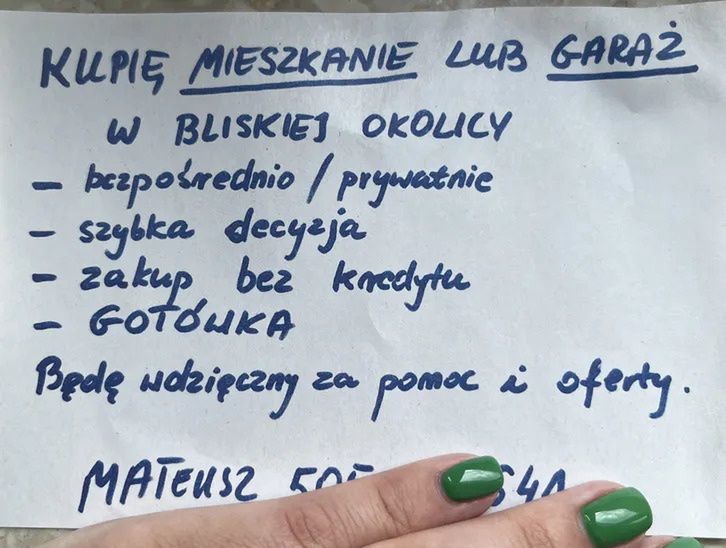 KUPIĘ MIESZKANIE LUB GARAŻ
W BLISKIEJ OKOLICY
- bezpośrednio / prywatnie
- szybka decyzja
- zakup bez kredytu
- GOTÓWKA
Będę wdzięczny za pomoc i oferty.
MATEUSZ